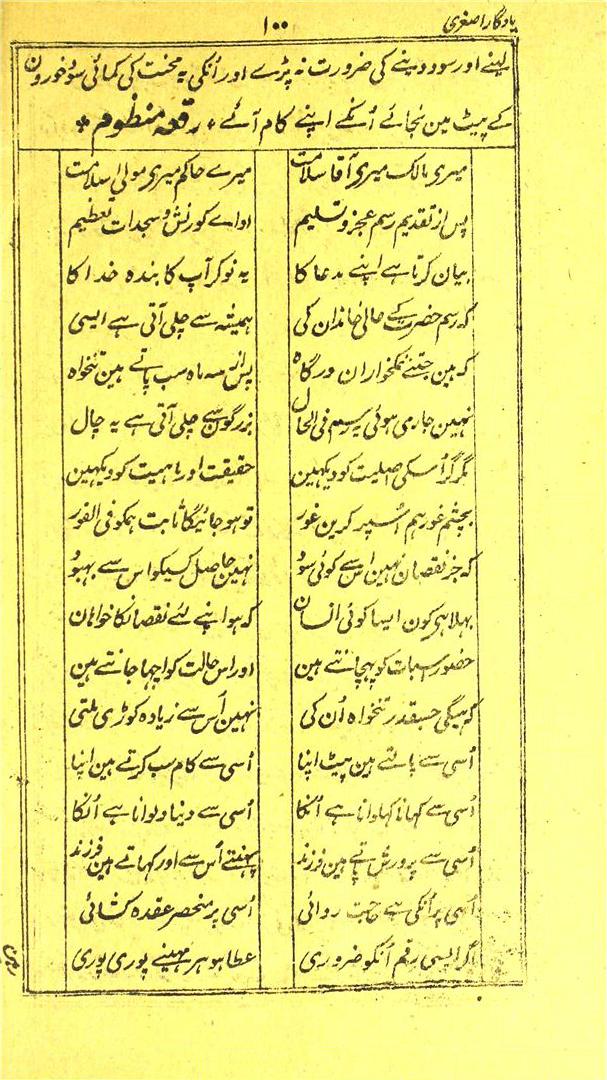 یادگار اصغری
۱۰۰
لینے اور سود دینے کی ضرورت نہ پڑے اور اُنکی یہ محنت کی کمائی سود خورون
کے پیٹ مین نجائے اُنکے اپنے کام آئے * رقعہ منظوم *
میری مالک میری آقا سلامت میرے حاکم میری مولیٰ سلامت
پس از تقدیم رسم عجز و تسلیم اداے کورنش و سجدات تعظیم
بیان کرتا ہے اپنے مدعا کا یہ نوکر آپ کا بندہ خدا کا
کہ رسم حضرت کے عالی خاندان کی ہمیشہ سے چلی آتی ہے ایسی
کہ ہین جتنے نمکخواران درگاہ پس از سہ ماہ سب پاتے ہین تنخواہ
نہین جاری ہوئی یہ رسم فی الحال بزرگون سے چلی آتی ہے یہ چال
مگر گر اُسکی اصلیت کو دیکہین حقیقت اور ماہیت کو دیکہین
بچشم غور ہم اُسپر کرین غور تو ہو جائیگا ثابت ہمکو فی الفور
کہ جز نقصان نہین اس سے کوئی سود نہین حاصل کسیکو اس سے بہبود
بہلا ہی کون ایسا کوئی انسان کہ ہو اپنے لئے نقصانکا خواہان
حضور اسبات کو پہچانتے ہین اور اس حالت کو اچہا جانتے ہین
کہ ہیگی جسقدر تنخواہ اُن کی نہین اُس سے زیادہ کوڑی ملتی
اُسی سے پالتے ہین پیٹ اپنا اُسی سے کام سب کرتے ہین اپنا
اُسی سے کہانا کہلوانا ہے اُنکا اُسی سے دینا دلوانا ہے اُنکا
اُسی سے پرورش پاتے ہین فرزند پہنتے اُس سے اور کہاتے ہین فرزند
اُسی پر اُنکی ہے حاجت روائی اُسی پر منحصر عقدہ کشائی
اگر ایسی رقم اُنکو ضروری عطا ہو ہر مہینے پوری پوری